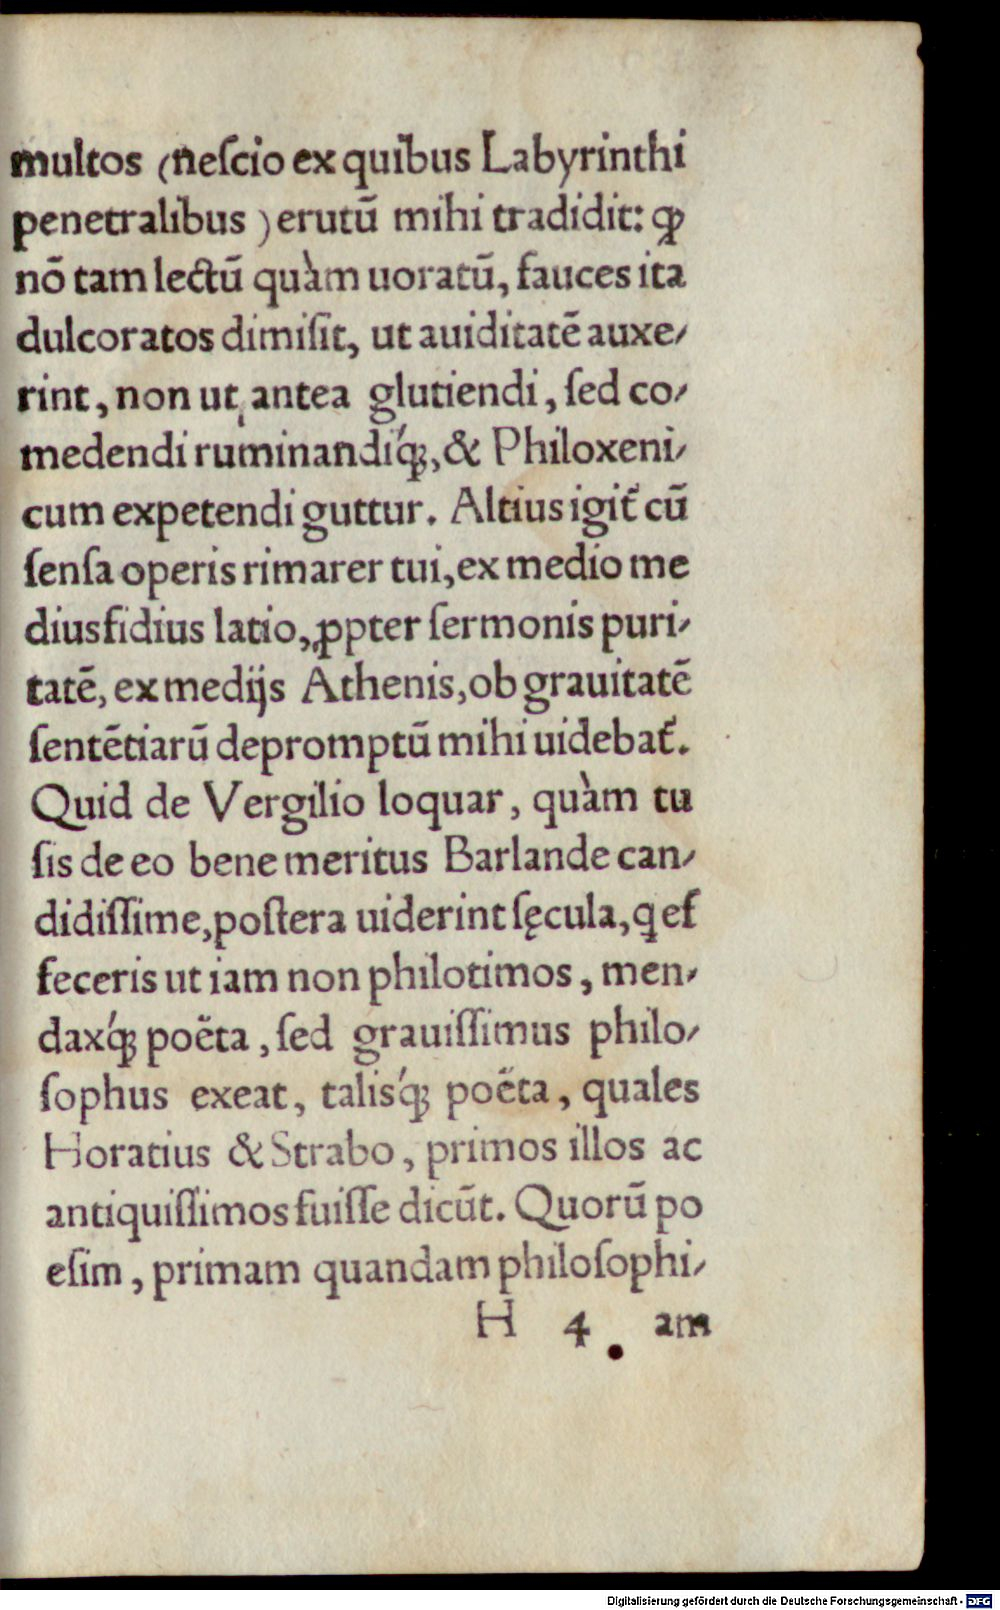 multos (neſcio ex quibus Labyrinthi
penetralibus ) erutū mihi tradidit: ꝙ
nō tam lectū quàm uoratū, fauces ita
dulcoratos dimiſit, ut auiditatē auxe⸗
rint, non ut antea glutiendi, ſed co⸗
medendi ruminandiq́ꝫ, & Philoxeni⸗
cum expetendi guttur. Altius igit᷑ cū
ſenſa operis rimarer tui, ex medio me
diusfidius latio, ꝓpter ſermonis puri⸗
tatē, ex medijs Athenis, ob grauitatē
ſentētiarū depromptū mihi uidebat᷑.
Quid de Vergilio loquar, quàm tu
ſis de eo bene meritus Barlande can⸗
didiſſime, poſtera uiderint ſęcula, q eſ
feceris ut iam non philotimos, men⸗
daxq́ꝫ poëta, ſed grauiſſimus philo⸗
ſophus exeat, talisq́ꝫ poëta, quales
Horatius & Strabo, primos illos ac
antiquiſſimos fuiſſe dicūt. Quorū po
eſim, primam quandam philoſophi⸗
H 4 am
Digitalisierung gefördert durch die Deutsche Forschungsgemeinschaft - DFG